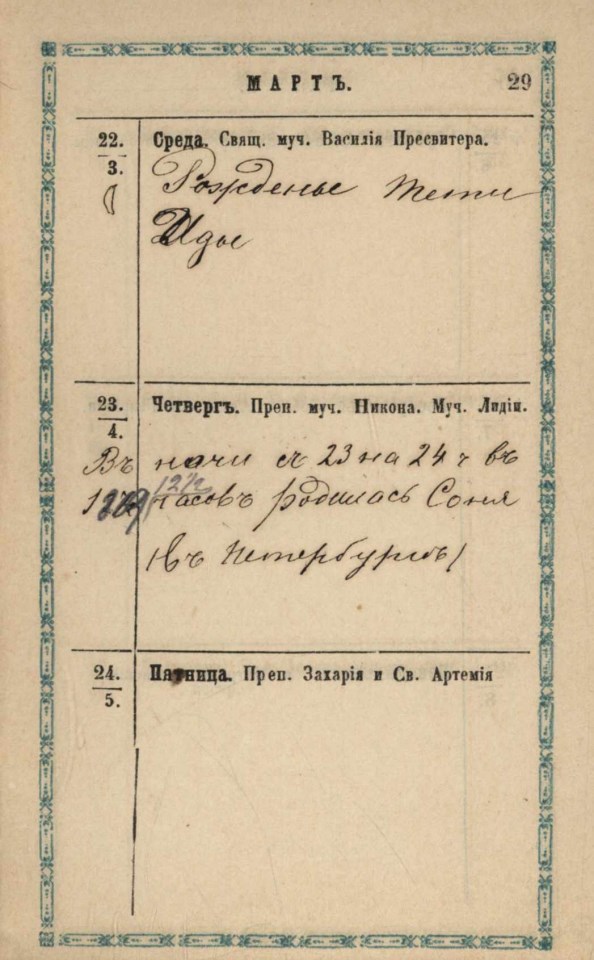 МАРТЪ. 29
22. Среда. Свящ. муч. Василія Пресвитера.
3. Рожденье тети
Иды
23. Четвергъ. Преп. муч. Никона. Муч. Лидіи.
4.
Въ ночи съ 23 на 24 въ
12½ часовъ родилась Соня
(въ Петербургѣ)
24. Пятница. Преп. Захарія и Св. Артемія
5.